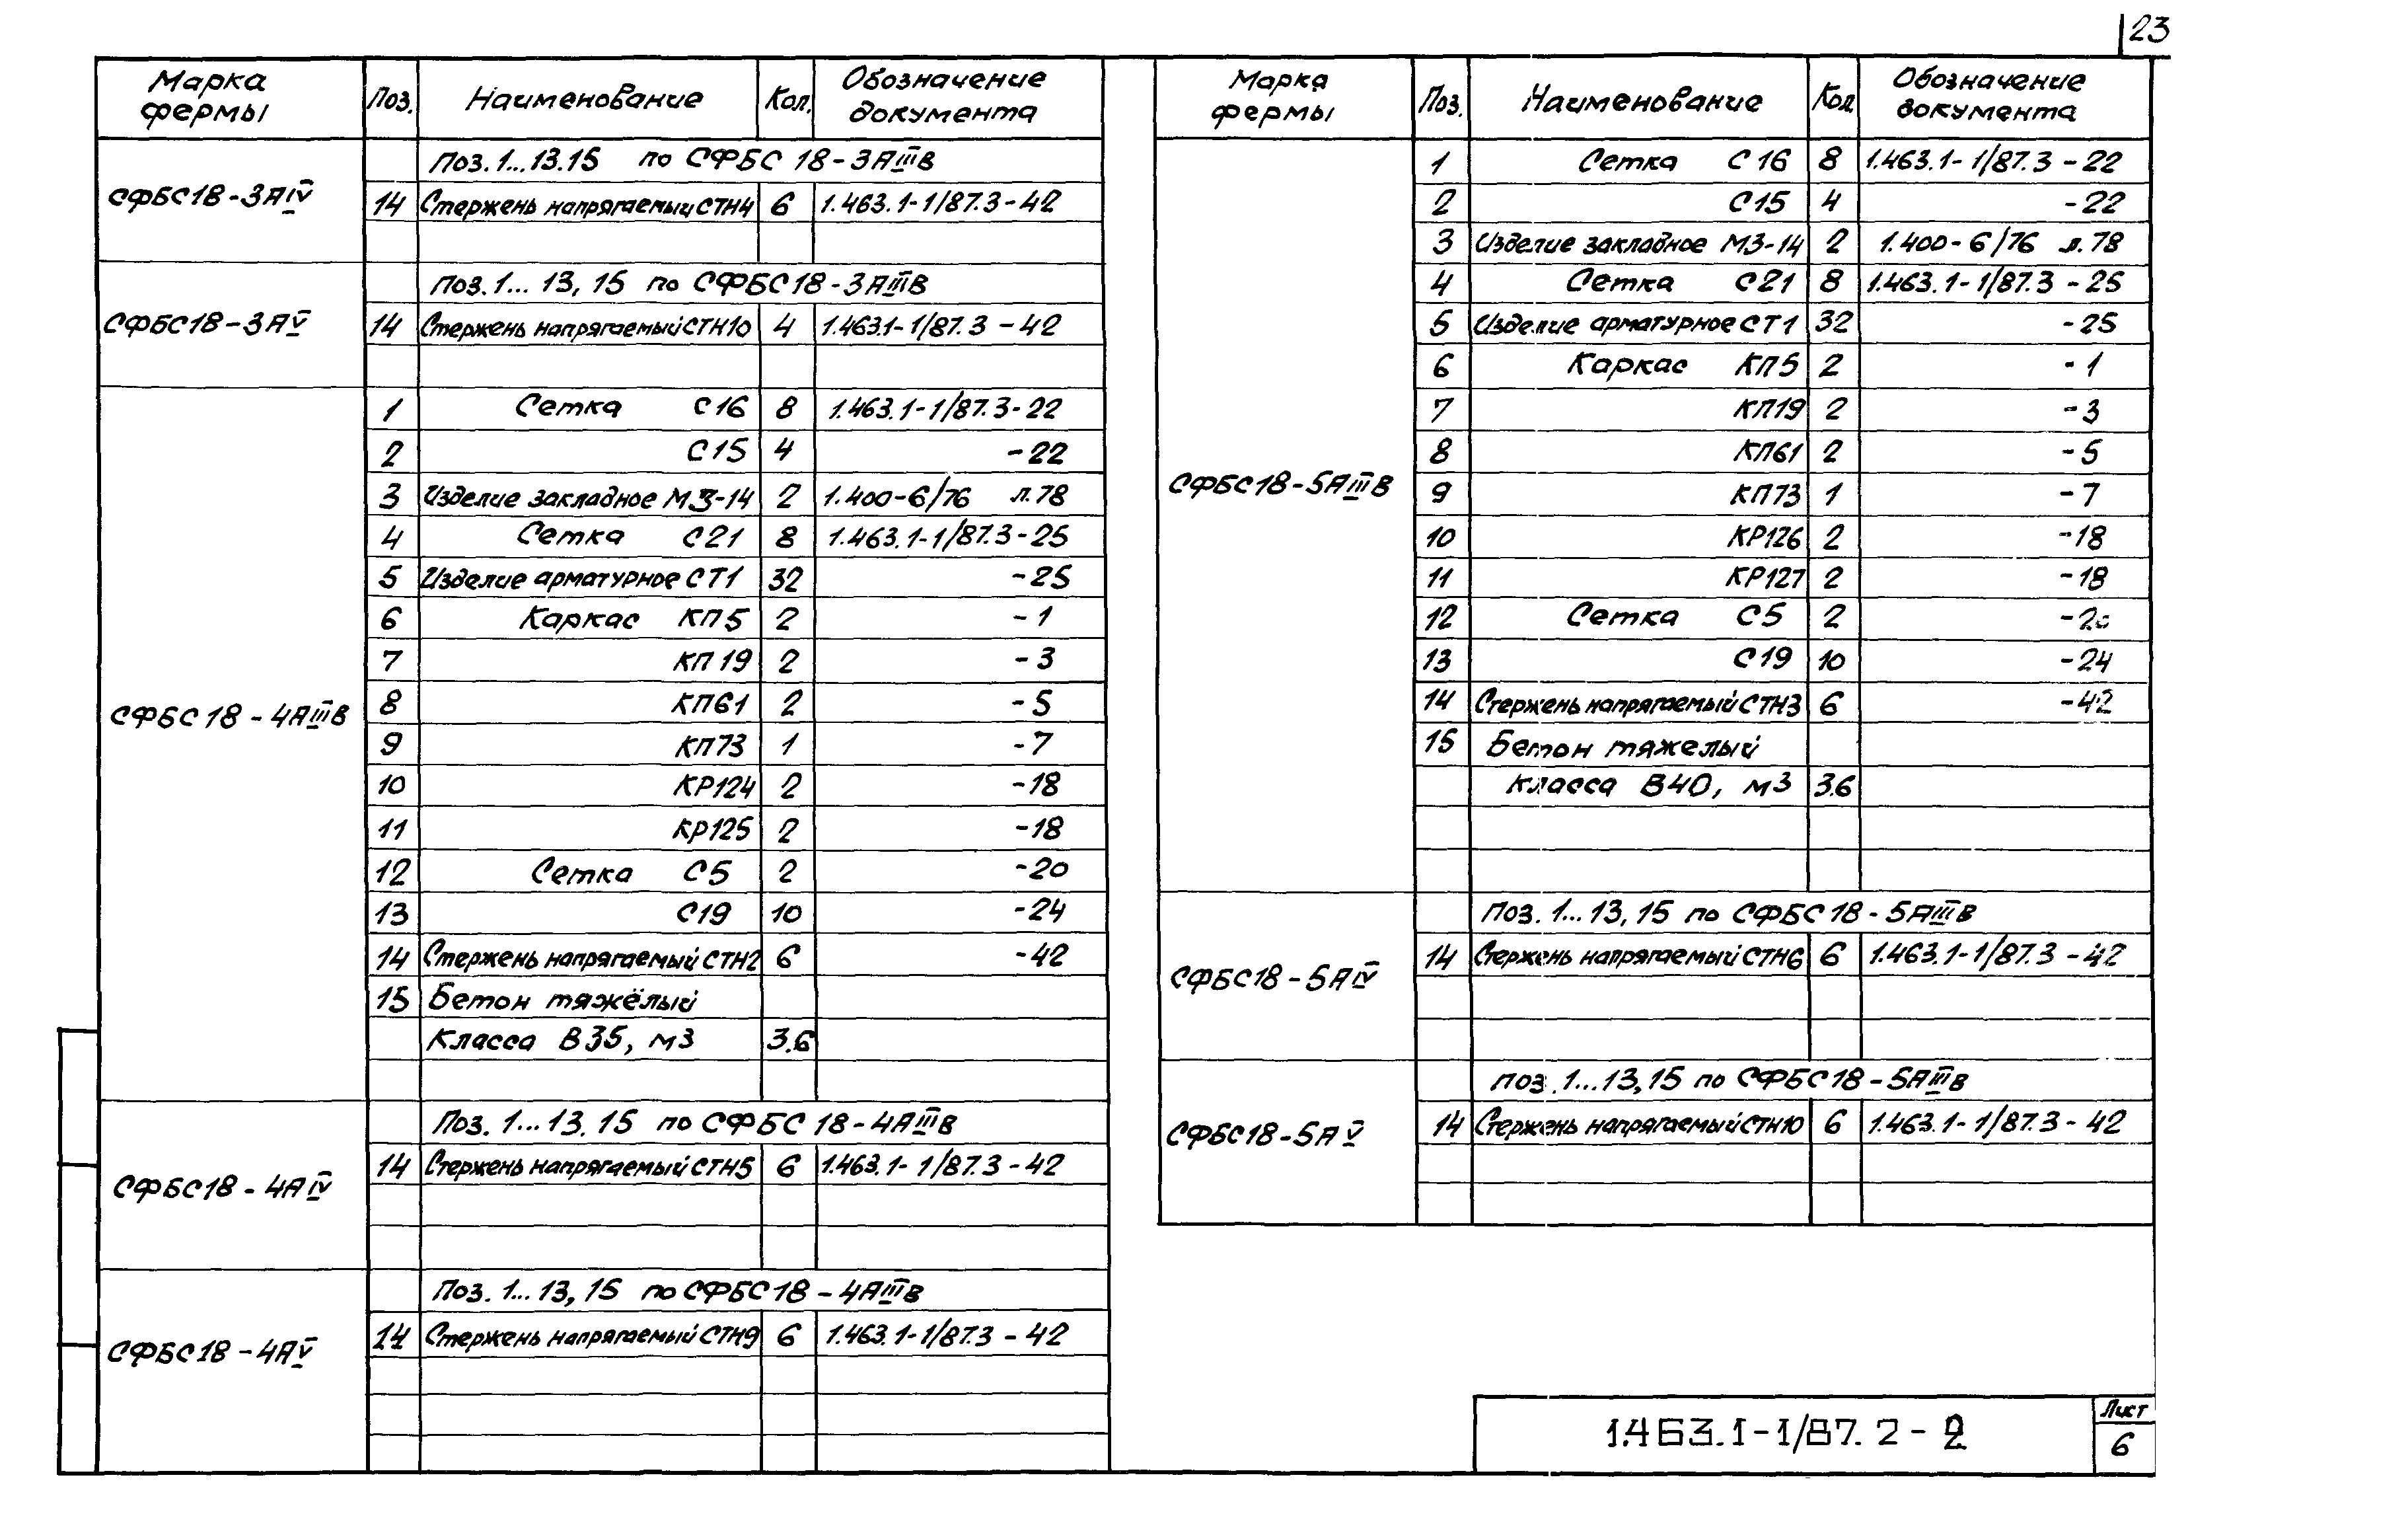 23
Марка фермы | Поз. | Наименование | Кол. | Обозначение документа
СФБС18-3АIV
Поз. 1...13.15 по СФБС 18-3АIIIв
14 | Стержень напрягаемый СТН4 | 6 | 1.463.1-1/87.3-42
СФБС18-3АV
Поз. 1... 13, 15 по СФБС18-3АIIIв
14 | Стержень напрягаемый СТН10 | 4 | 1.463.1-1/87.3-42
СФБС18-4АIIIв
1 | Сетка С16 | 8 | 1.463.1-1/87.3-22
2 | С15 | 4 | -22
3 | Изделие закладное МЗ-14 | 2 | 1.400-6/76 л.78
4 | Сетка С21 | 8 | 1.463.1-1/87.3-25
5 | Изделие арматурное СТ1 | 32 | -25
6 | Каркас КП5 | 2 | -1
7 | КП19 | 2 | -3
8 | КП61 | 2 | -5
9 | КП73 | 1 | -7
10 | КР124 | 2 | -18
11 | КР125 | 2 | -18
12 | Сетка С5 | 2 | -20
13 | С19 | 10 | -24
14 | Стержень напрягаемый СТН2 | 6 | -42
15 | Бетон тяжёлый
Класса В35, м3 | 3.6
СФБС18-4АIV
Поз. 1...13. 15 по СФБС 18-4АIIIв
14 | Стержень напрягаемый СТН5 | 6 | 1.463.1-1/87.3-42
СФБС18-4АV
Поз. 1... 13, 15 по СФБС18-4АIIIв
14 | Стержень напрягаемый СТН9 | 6 | 1.463.1-1/87.3-42
Марка фермы | Поз. | Наименование | Кол | Обозначение документа
СФБС18-5АIIIв
1 | Сетка С16 | 8 | 1.463.1-1/87.3-22
2 | С15 | 4 | -22
3 | Изделие закладное МЗ-14 | 2 | 1.400-6/76 л.78
4 | Сетка С21 | 8 | 1.463.1-1/87.3-25
5 | Изделие арматурное СТ1 | 32 | -25
6 | Каркас КП5 | 2 | -1
7 | КП19 | 2 | -3
8 | КП61 | 2 | -5
9 | КП73 | 1 | -7
10 | КР126 | 2 | -18
11 | КР127 | 2 | -18
12 | Сетка С5 | 2 | -20
13 | С19 | 10 | -24
14 | Стержень напрягаемый СТН3 | 6 | -42
15 | Бетон тяжелый
класса В40, м3 | 3.6
СФБС18-5АIV
Поз. 1...13, 15 по СФБС18-5АIIIв
14 | Стержень напрягаемый СТН6 | 6 | 1.463.1-1/87.3-42
СФБС18-5АV
поз. 1...13, 15 по СФБС18-5АIIIв
14 | Стержень напрягаемый СТН10 | 6 | 1.463.1-1/87.3-42
1.463.1-1/87.2-2
Лист
6